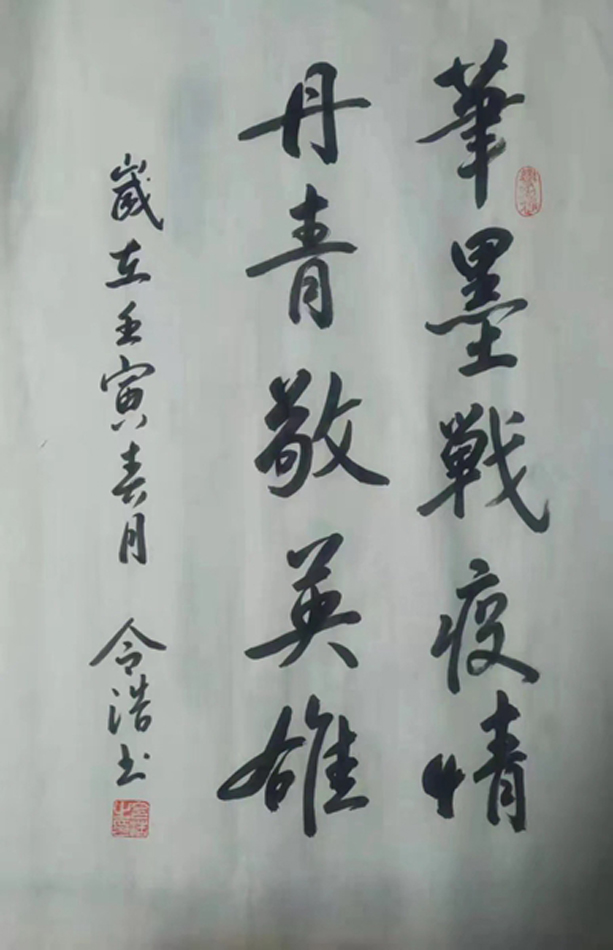 筆墨戰疫情
丹青敬英雄
歲在壬寅春月 令浩书